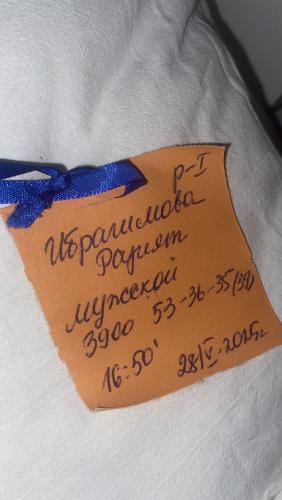 р-I
Ибрагимова
Расият
мужской
3900 53-36-35(39)
16:50'
28/V-2025г